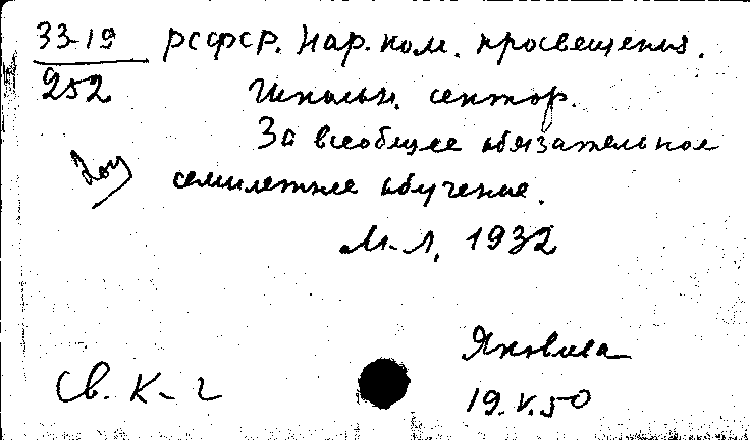 33-19 РСФСР. Нар. ком. просвещения.
252 Школьн. сектор.
За всеобщее обязательное
семилетнее обучение.
М.-Л. 1932
Яковлева
Св. к-г 19.V.50